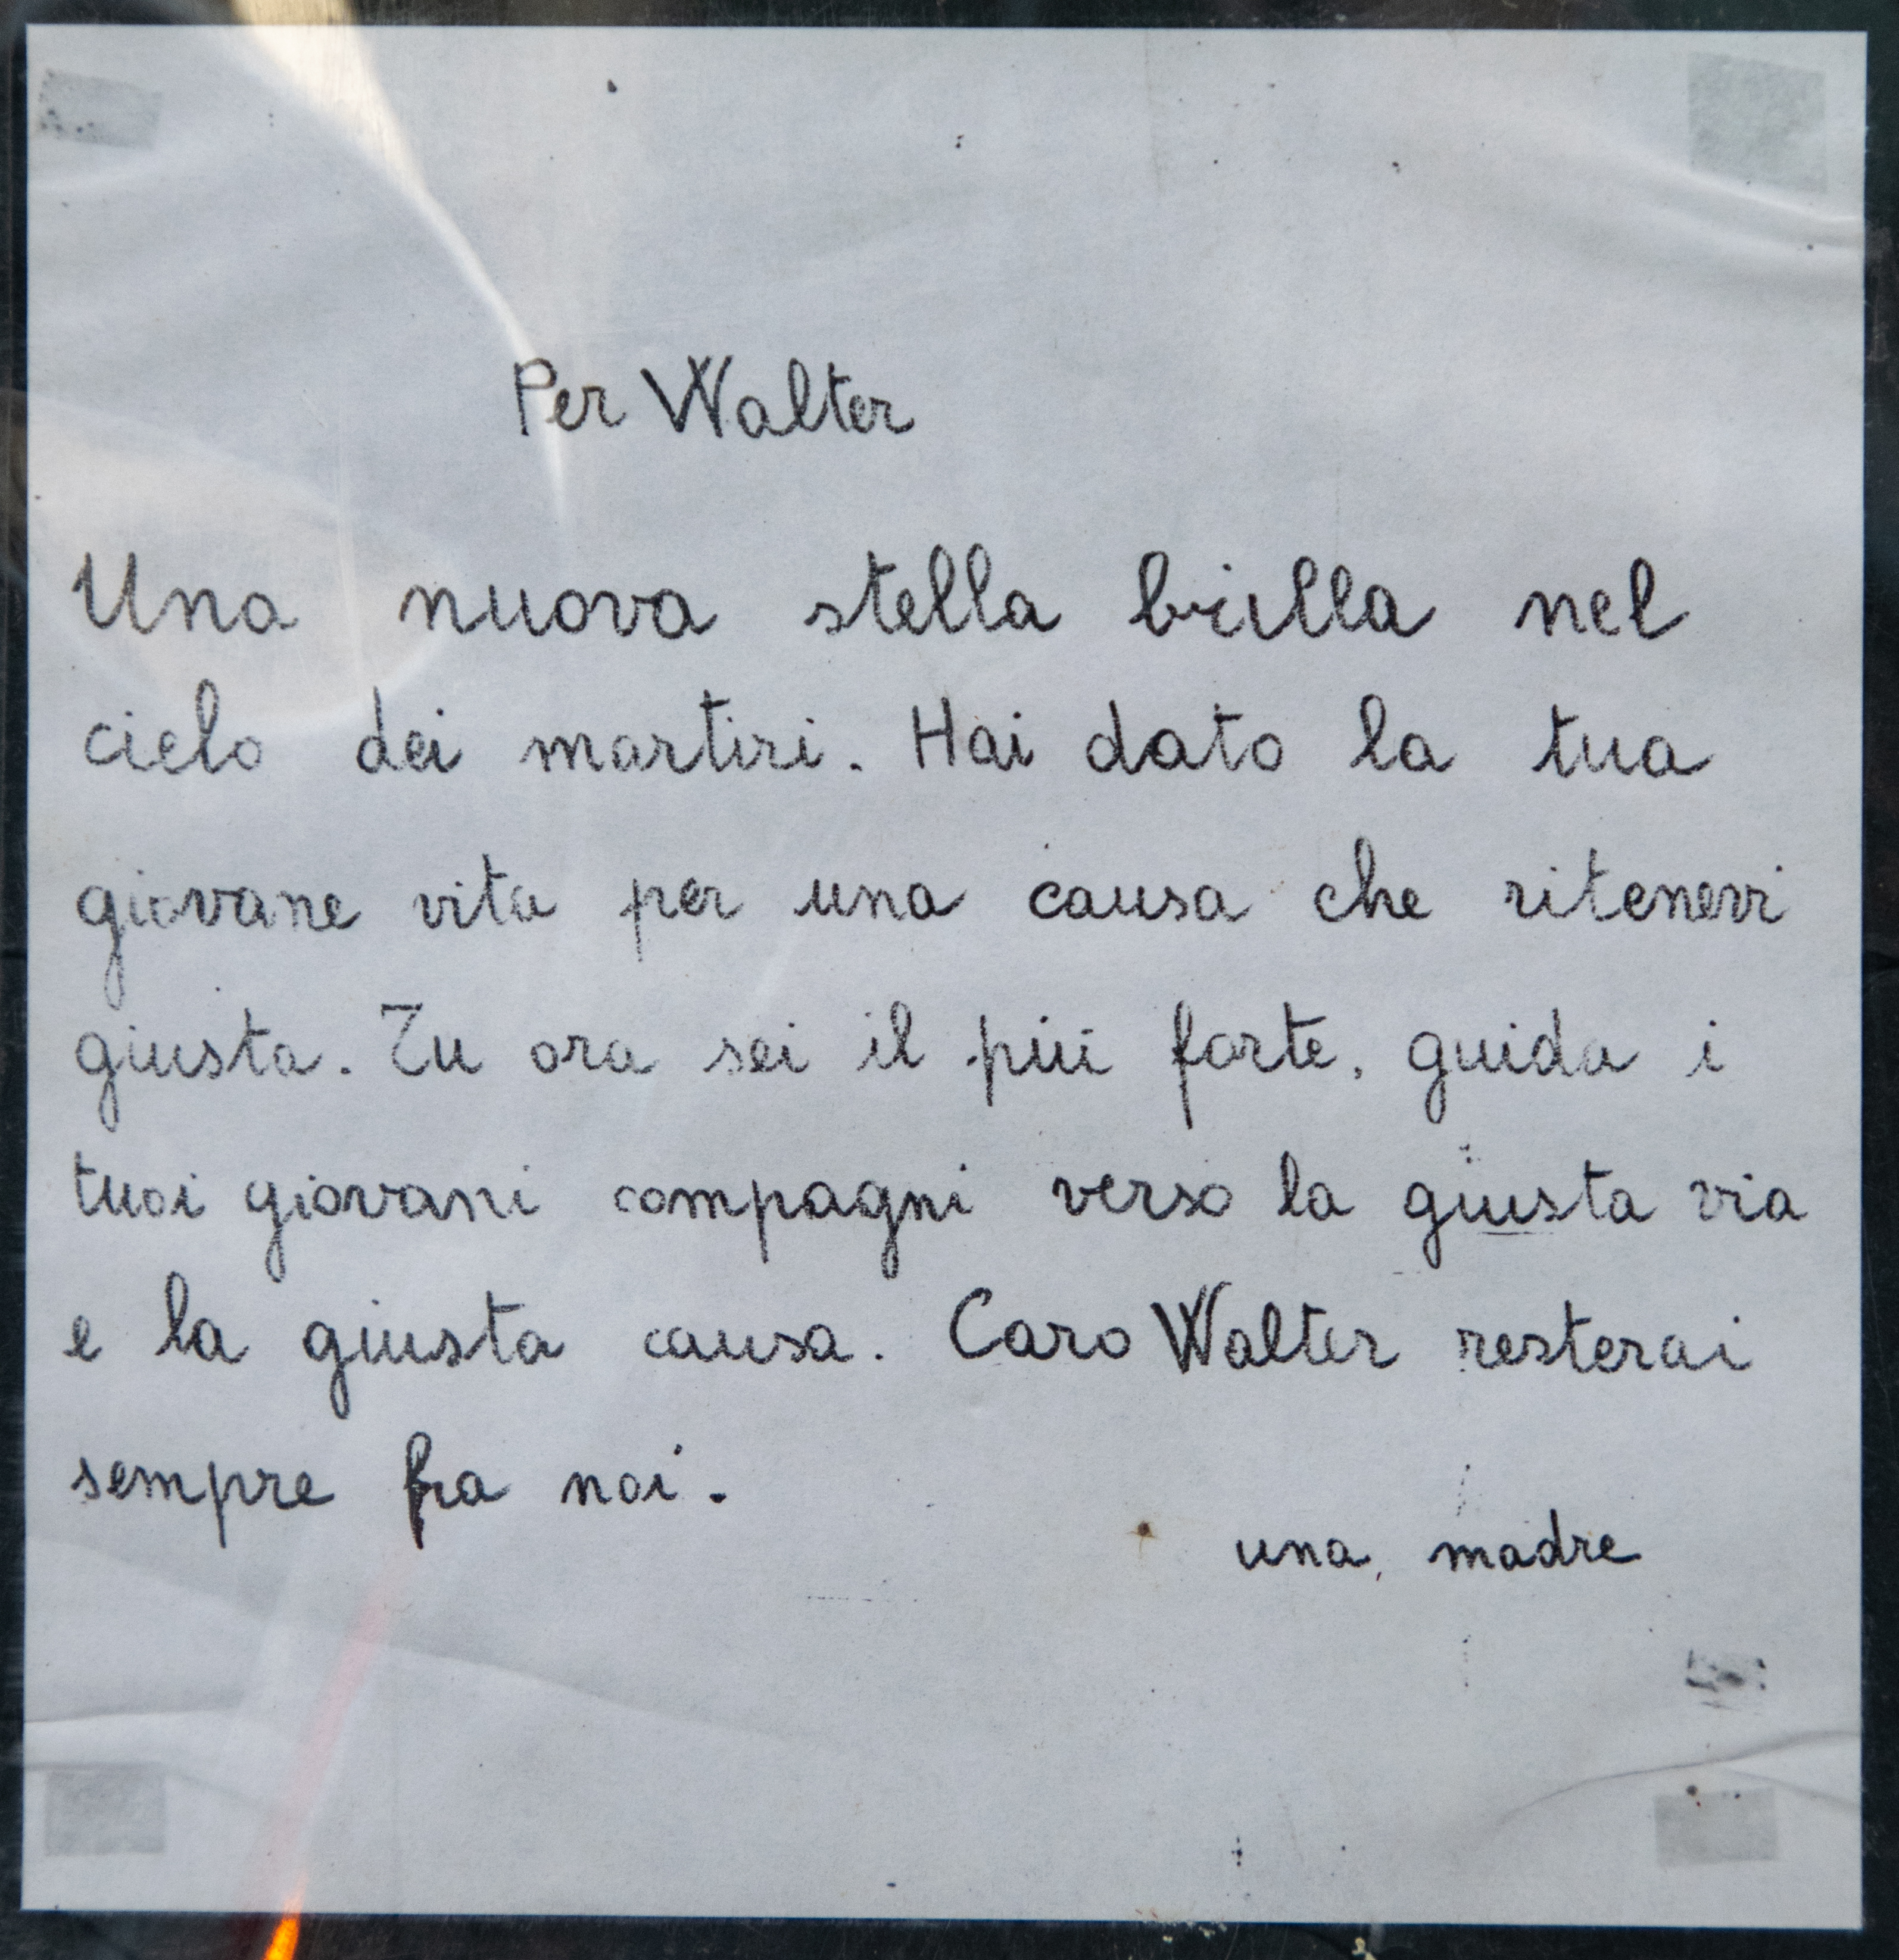 Per Walter
Una nuova stella brilla nel
cielo dei martiri. Hai dato la tua
giovane vita per una causa che ritenevi
giusta. Tu ora sei il più forte, guida i
tuoi giovani compagni verso la giusta via
e la giusta causa. Caro Walter resterai
sempre fra noi.
una madre